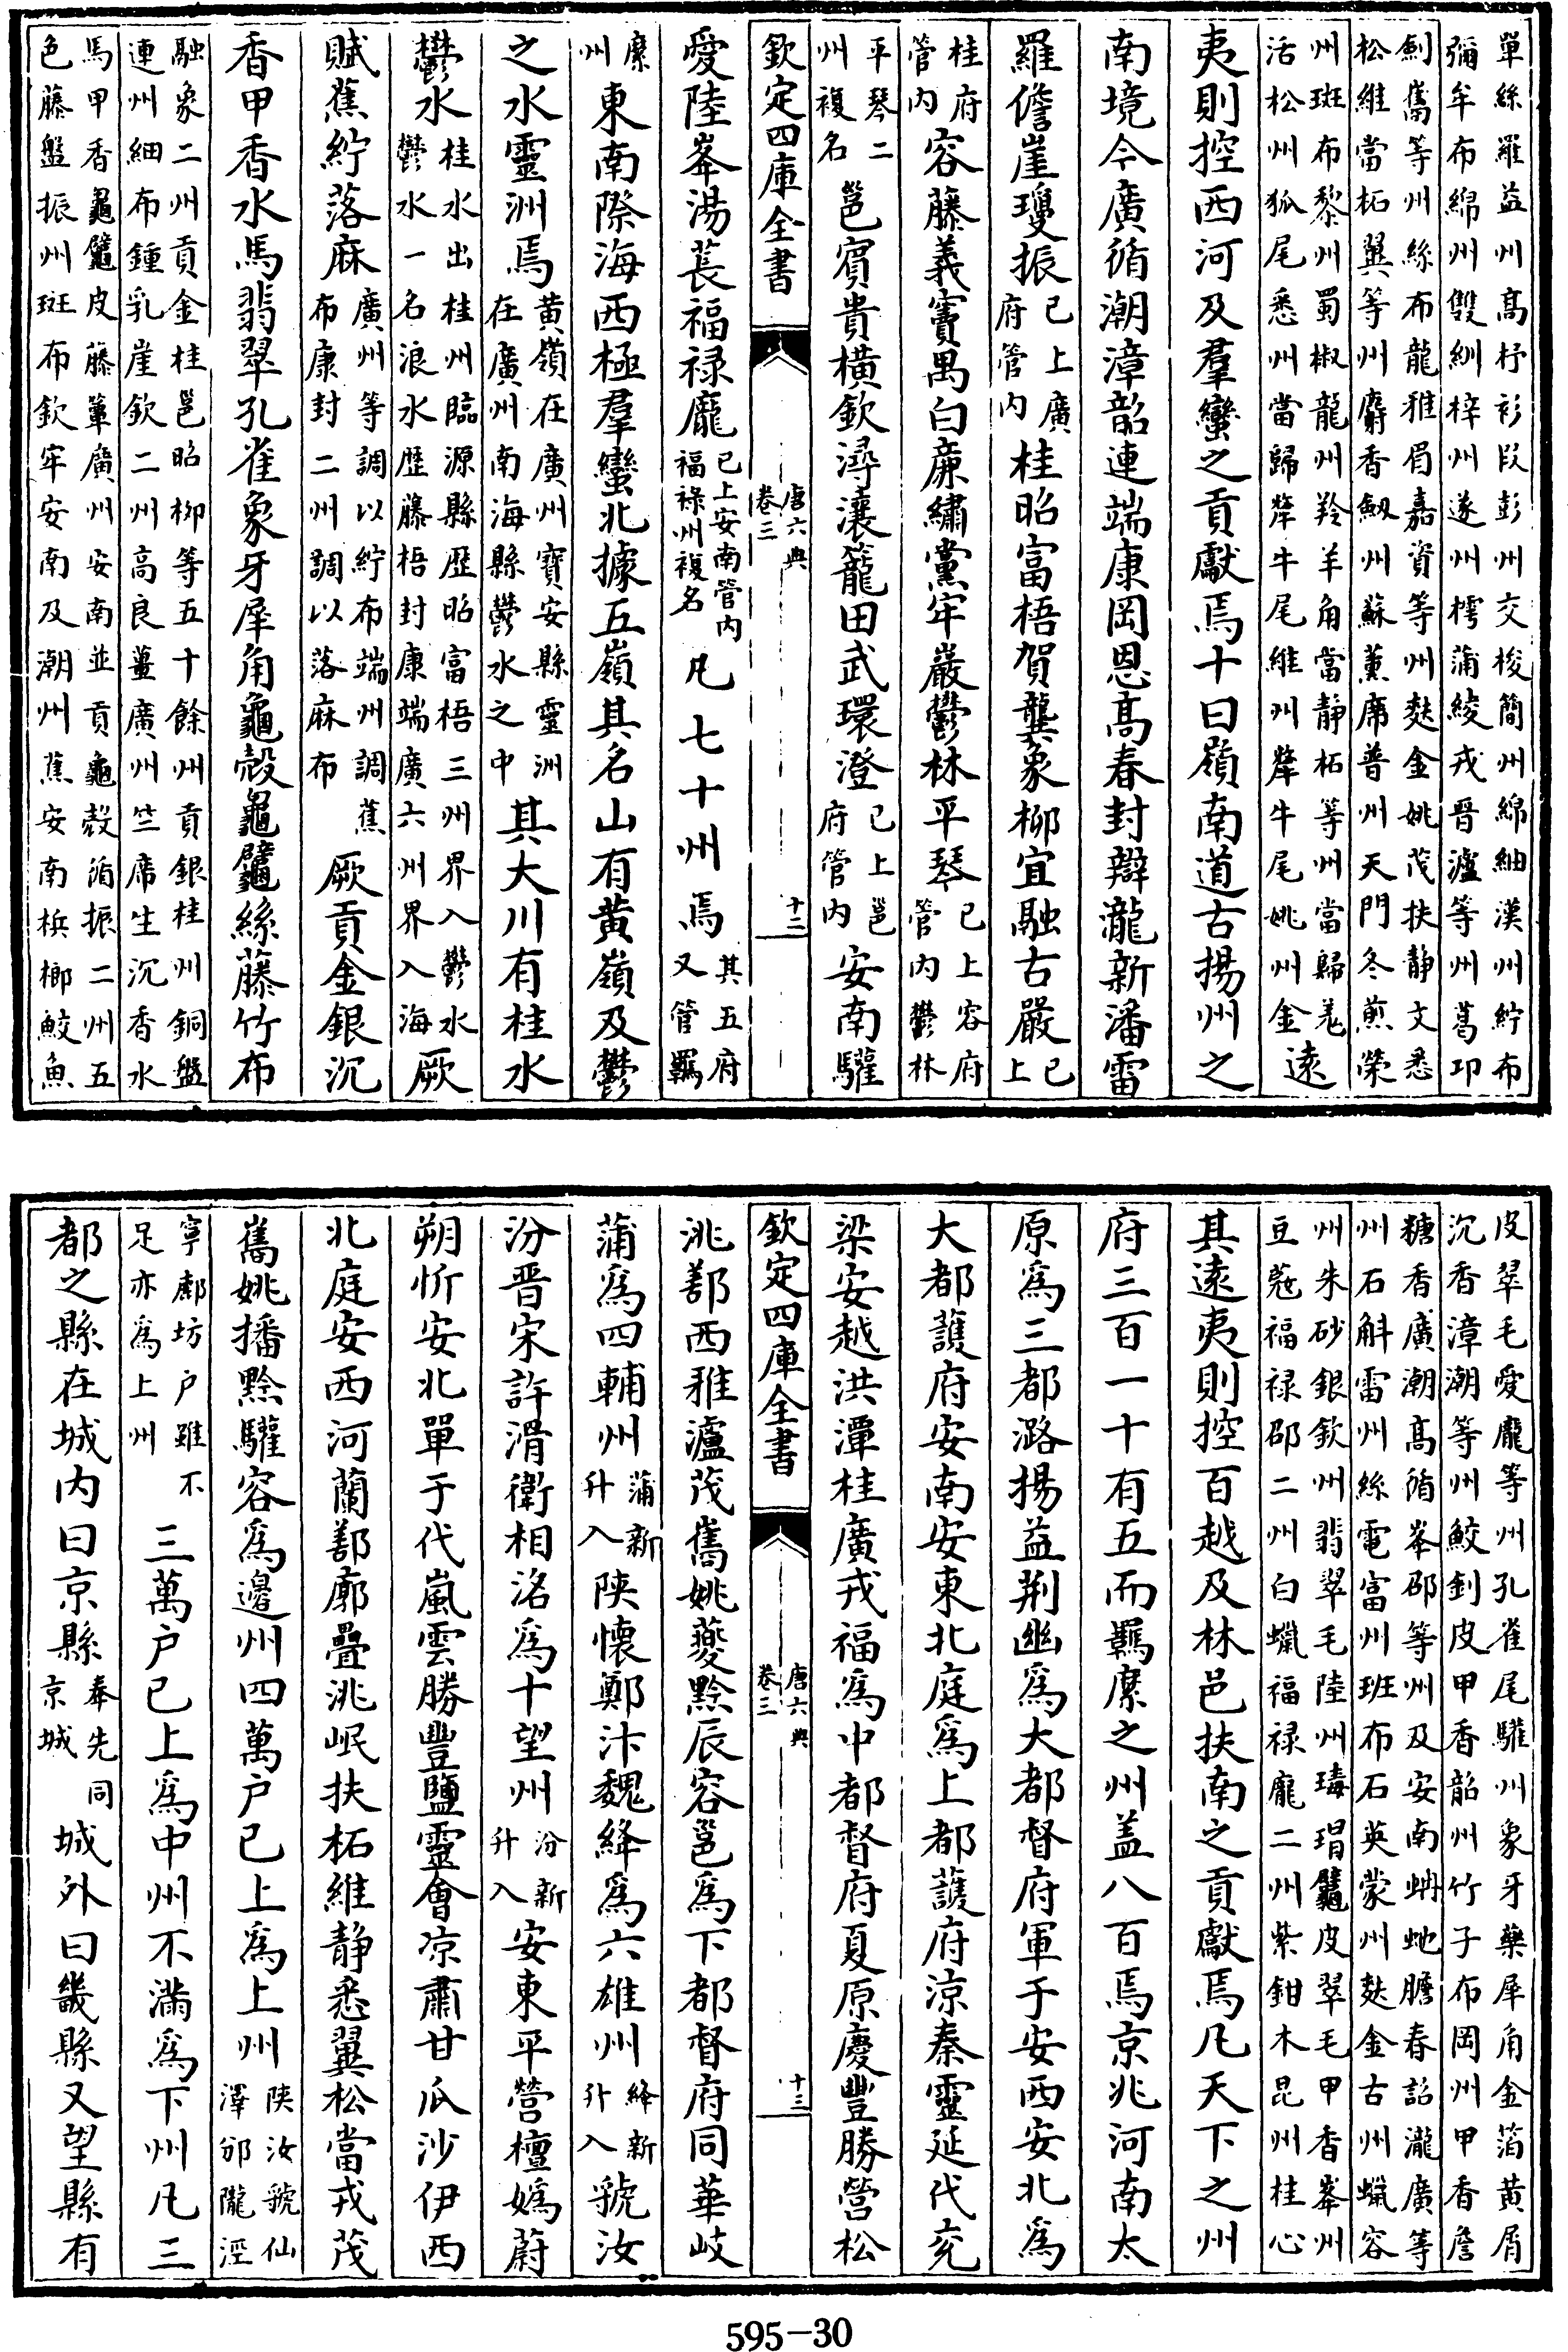 單絲羅益州髙杼衫段彭州交梭簡州綿紬漢州紵布
彌牟布綿州雙紃梓州遂州樗蒲綾戎晉瀘等州葛邛
劍巂等州絲布龍雅眉嘉資等州麩金姚茂扶靜文悉
松維當柘翼等州麝香㓨州蘇薰席普州天門冬煎榮
州斑布黎州蜀椒龍州羚羊角當靜柘等州當歸羌
活松州狐尾悉州當歸犛牛尾維州犛牛尾姚州金逺
夷則控西河及羣蠻之貢獻焉十曰嶺南道古揚州之
南境今廣循潮漳韶連端康岡恩髙春封辯瀧新潘雷
羅儋崖瓊振已上廣府管内桂昭富梧賀龔象柳宜融古嚴已上
桂府管内容藤義竇禺白㢘繡黨牢巖鬱林平琴已上容府管内鬱林
平琴二州複名邕賓貴横欽潯瀼籠田武環澄已上邕府管内安南驩
欽定四庫全書 唐六典卷三 十二
愛陸峯湯萇福禄龎已上安南管内福禄州複名凡七十州焉其五府又管羈
縻州東南際海西極羣蠻北據五嶺其名山有黄嶺及鬱
之水靈洲焉黄嶺在廣州寳安縣靈洲在廣州南海縣鬱水之中其大川有桂水
鬱水桂水出桂州臨源縣歴昭富梧三州界入鬱水鬱水一名浪水歴藤梧封康端廣六州界入海厥
賦蕉紵落麻廣州等調以紵布端州調蕉布康封二州調以落麻布厥貢金銀沉
香甲香水馬翡翠孔雀象牙犀角龜殻龜鼊絲藤竹布
融象二州貢金桂邕昭柳等五十餘州貢銀桂州銅盤
連州細布鍾乳崖欽二州高良薑廣州竺席生沉香水
馬甲香龜鼊皮藤簟廣州安南並貢龜殻循振二州五
色藤盤振州斑布欽牢安南及潮州蕉安南檳榔鮫魚
皮翠毛愛龎等州孔雀尾驩州象牙藥犀角金箔黄屑
沉香漳潮等州鮫釗皮甲香韶州竹子布岡州甲香詹
糖香廣潮髙循峯邵等州及安南蚺虵膽春詔瀧廣等
州石斛雷州絲電富州班布石英蒙州麩金古州蠟容
州朱砂銀欽州翡翠毛陸州瑇瑁鼊皮翠毛甲香峯州
豆蔻福禄邵二州白蠟福禄龎二州紫鉗木昆州桂心
其逺夷則控百越及林邑扶南之貢獻焉凡天下之州
府三百一十有五而羈縻之州盖八百焉京兆河南太
原為三都潞揚益荆幽為大都督府單于安西安北為
大都護府安南安東北庭為上都護府涼秦靈延代兖
梁安越洪潭桂廣戎福為中都督府夏原慶豐勝營松
欽定四庫全書 唐六典卷三 十三
洮鄯西雅瀘茂巂姚夔黔辰容邕為下都督府同華岐
蒲為四輔州蒲新升入陜懷鄭汴魏絳為六雄州絳新升入虢汝
汾晉宋許滑衛相洺為十望州汾新升入安東平營檀媯蔚
朔忻安北單于代嵐雲勝豐鹽靈會凉肅甘瓜沙伊西
北庭安西河蘭鄯廓疊洮岷扶柘維靜悉翼松當戎茂
巂姚播黔驩容為邊州四萬户已上為上州陜汝虢仙澤邠隴涇
寧鄜坊户雖不足亦為上州三萬户已上為中州不滿為下州凡三
都之縣在城内曰京縣奉先同京城城外曰畿縣又望縣有
595-30